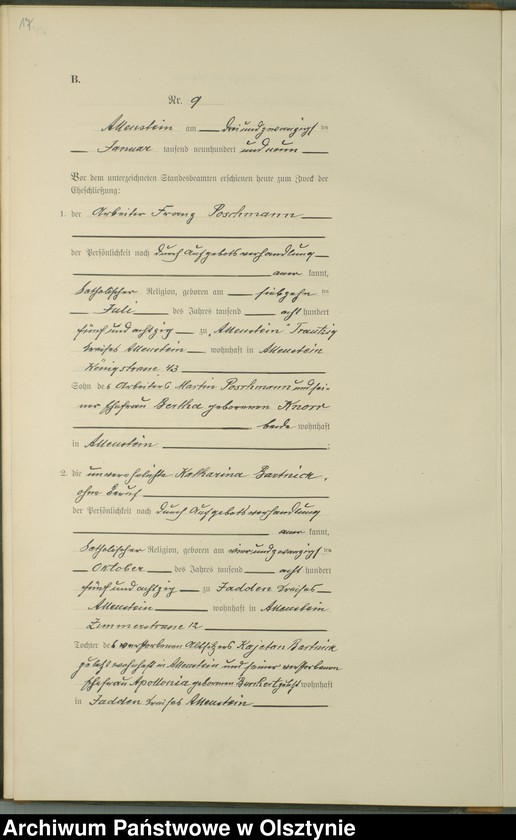 17.
B.
Nr. 9
Allenstein am dreiundzwanzigsten
Januar tausend neunhundert und neun
Vor dem unterzeichneten Standesbeamten erschienen heute zum Zweck der
Eheschließung:
1. der Arbeiter Franz Poschmann
der Persönlichkeit nach durch Aufgebotsverhandlung
aner kannt,
katholischer Religion, geboren am siebzehnten
Juli des Jahres tausend acht hundert
fünf und achtzig zu Trautzig
Kreises Allenstein wohnhaft in Allenstein
Königstrasse 43
Sohn des Arbeiters Martin Poschmann und sei-
ner Ehefrau Bertha geborenen Knorr
beide wohnhaft
in Allenstein ;
2. die unverehelichte Katharina Bartnick,
ohne Beruf
der Persönlichkeit nach durch Aufgebotsverhandlung
aner kannt,
katholischer Religion, geboren am vierundzwanzigsten
Oktober des Jahres tausend acht hundert
fünf und achtzig zu Jadden Kreises
Allenstein wohnhaft in Allenstein
Zimmerstrasse 12
Tochter des verstorbenen Altsitzers Kajetan Bartnick
zuletzt wohnhaft in Allenstein und seiner verstorbenen
Ehefrau Apollonia geborenen zuletzt wohnhaft
in Jadden Kreises Allenstein
Archiwum Państwowe w Olsztynie